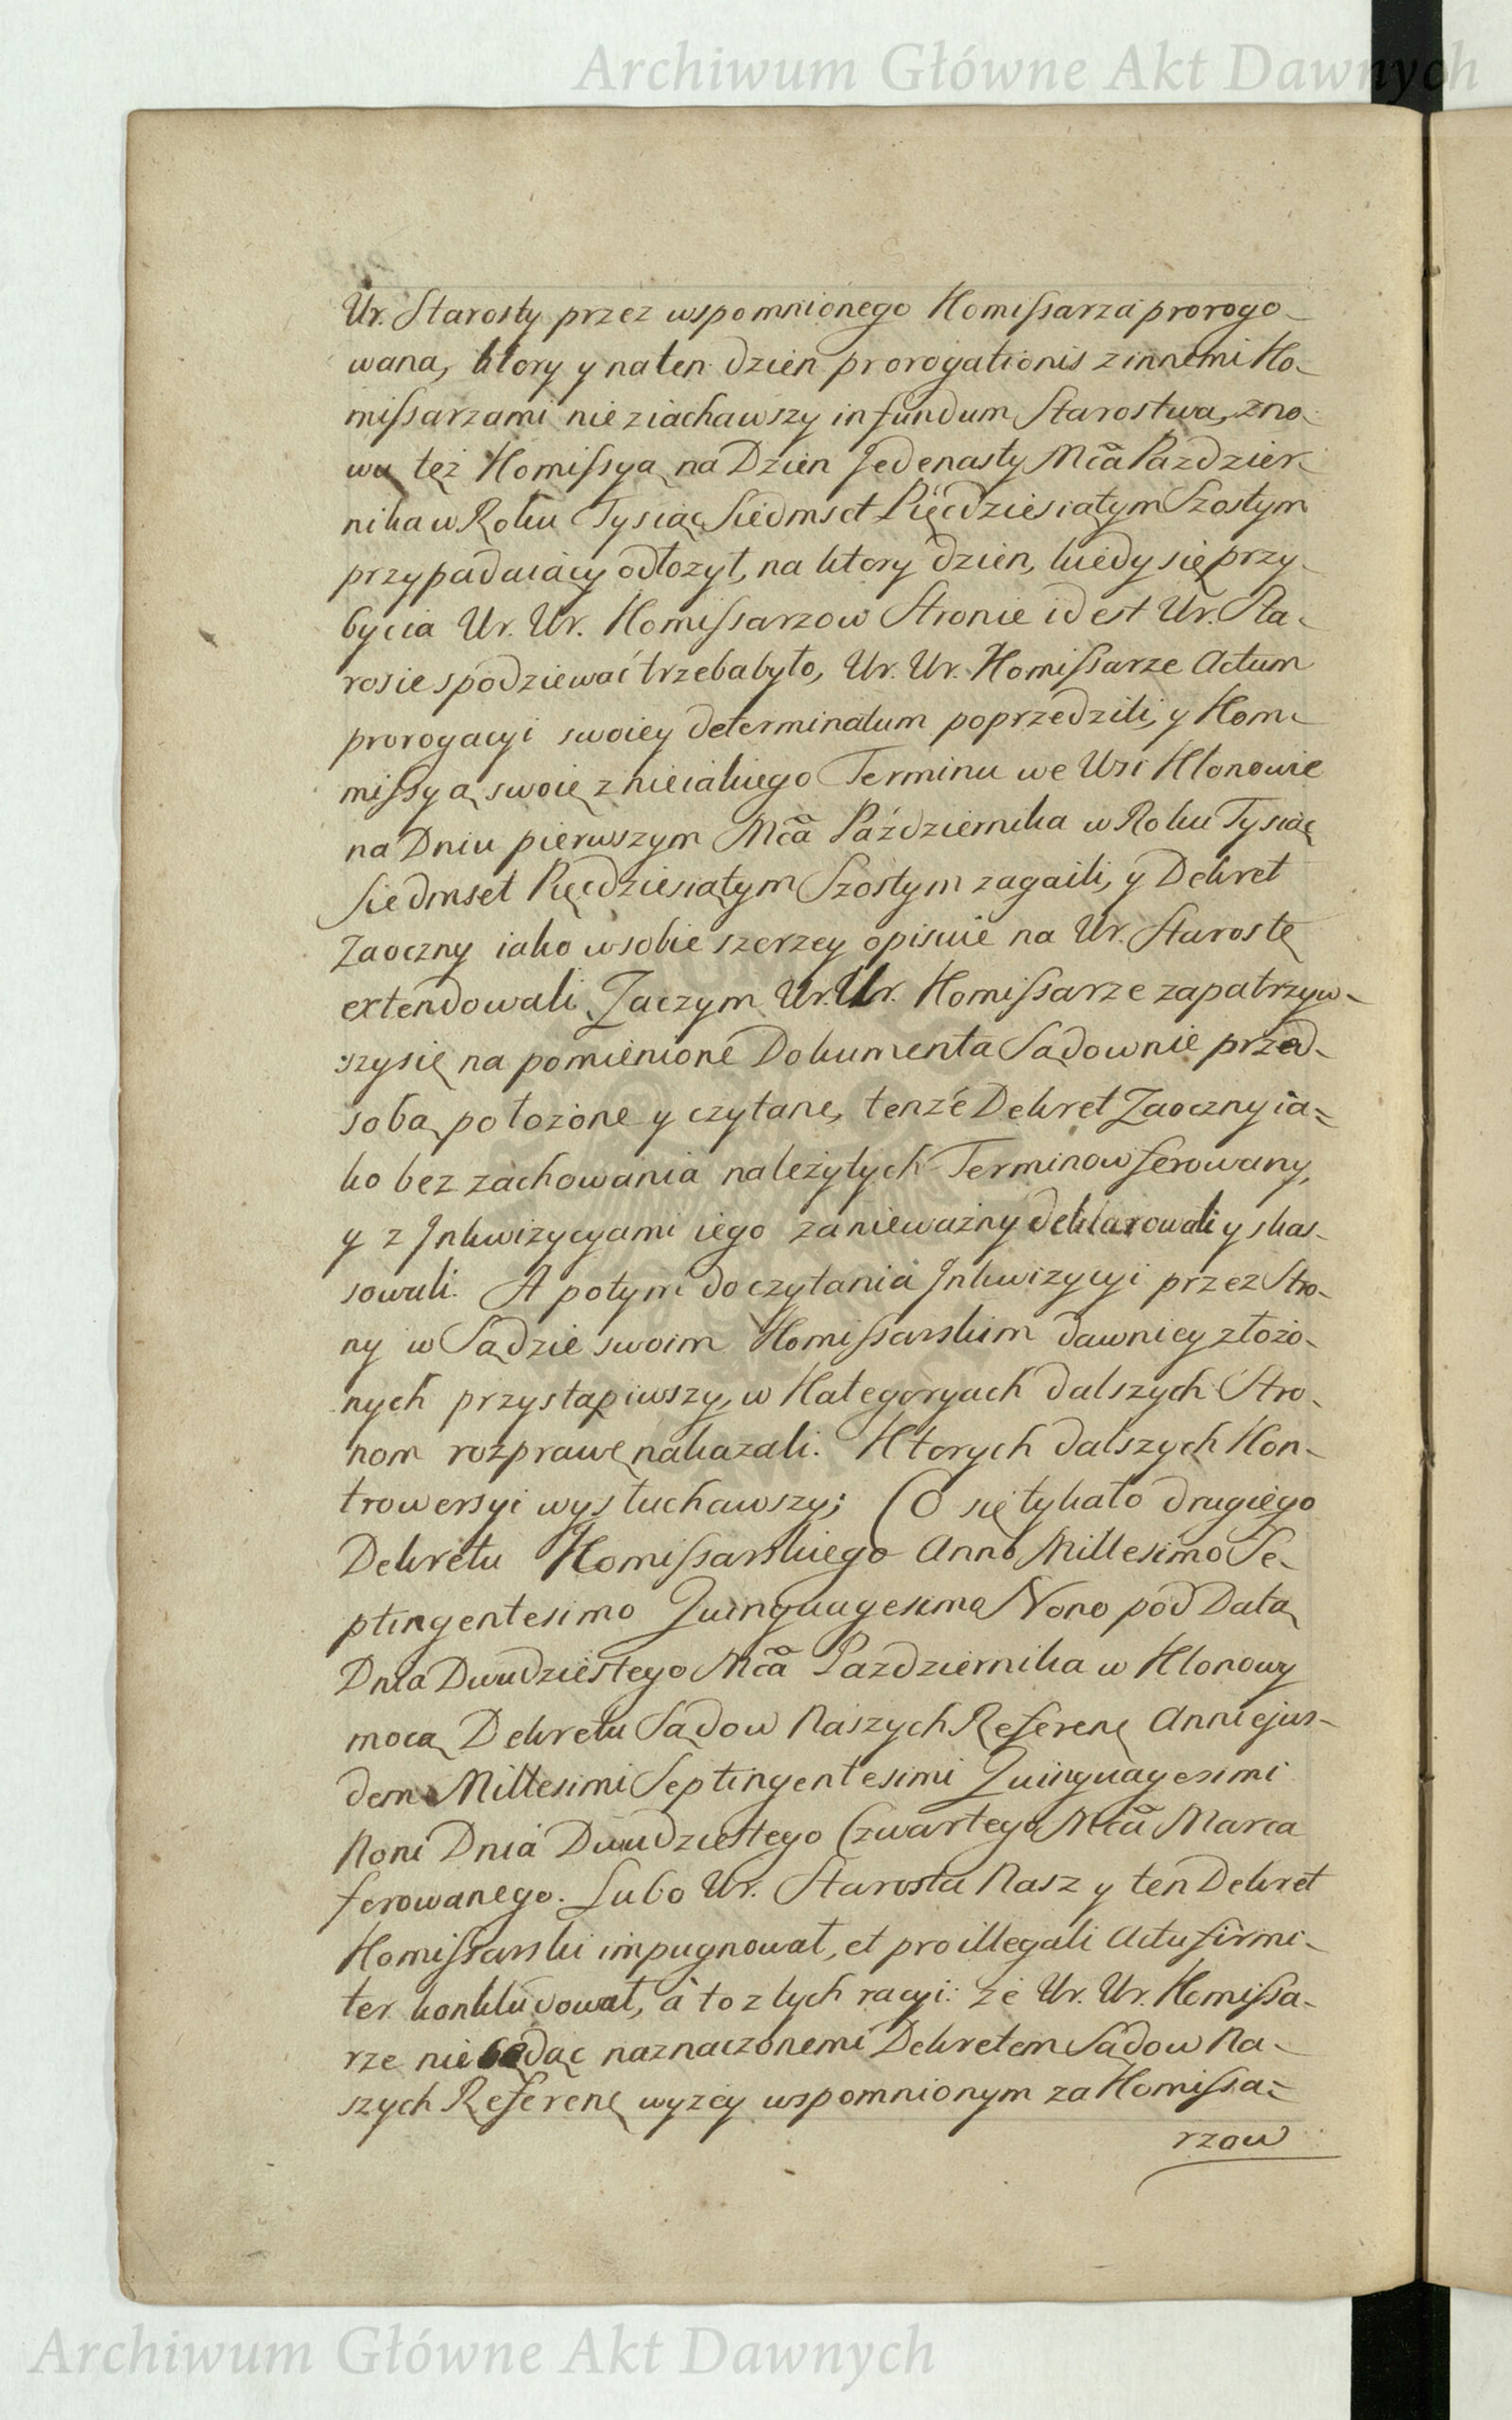 Archiwum Główne Akt Dawnych
Ur. Starosty przez wspomnionego Komissarza prorogo-
wana, ktory y na ten dzien prorogationis z innemi Ko-
missarzami nie ziachawszy in fundum Starostwa, zno-
wu tęż Komissyą na Dzien Jedenasty Mca Pazdzier-
nika w Roku Tysiąc Siedmset Pięcdziesiątym Szostym
przypadaiący odłozył, na ktory dzien, kiedy się przy-
bycia Ur. Ur. Komissarzow Stronie id est Ur. Sta-
roscie spodziewać trzeba było, Ur. Ur. Komissarze Actum
prorogacyi swoiey determinatum poprzedzili, y Kom-
missyą swoię z nieiakiego Terminu we Wsi Klonowie
na Dniu pierwszym Mca Października w Roku Tysiąc
Siedmset Pięcdziesiątym Szostym zagaili, y Dekret
Zaoczny iako w sobie szerzey opisuie na Ur. Starostę
extendowali. Zaczym Ur. Ur. Komissarze zapatrzyw-
szy się na pomienione Dokumenta Sądownie przed
sobą położone y czytane, tenże Dekret Zaoczny ia-
ko bez zachowania należytych Terminow ferowany,
y z Inkwizycyami iego za nieważny deklarowali y skas-
sowali. A potym do czytania Inkwizycyi przez Stro-
ny w Sądzie swoim Komissarskim dawniey złożo-
nych przystąpiwszy, w Kategoryach dalszych Stro-
nom rozprawę nakazali. Ktorych dalszych Kon-
trowersyi wysłuchawszy; Co się tykało drugiego
Dekretu Komissarskiego Anno Millesimo Se-
ptingentesimo Quinquagesimo Nono pod Datą
Dnia Dwudziestego Mca Pazdziernika w Klonowy
mocą Dekretu Sądow Naszych Referen: Anni ejus-
dem Millesimi Septingentesimi Quinquagesimi
Noni Dnia Dwudziestego Czwartego Mca Marca
ferowanego. Lubo Ur. Starosta Nasz y ten Dekret
Komissarski impugnował, et pro illegali Actu firmi-
ter konkludował, a to z tych racyi: że Ur. Ur. Komissa-
rze nie będąc naznaczonemi Dekretem Sądow Na-
szych Referen: wyzey wspomnionym za Komissa-
rzow
Archiwum Główne Akt Dawnych